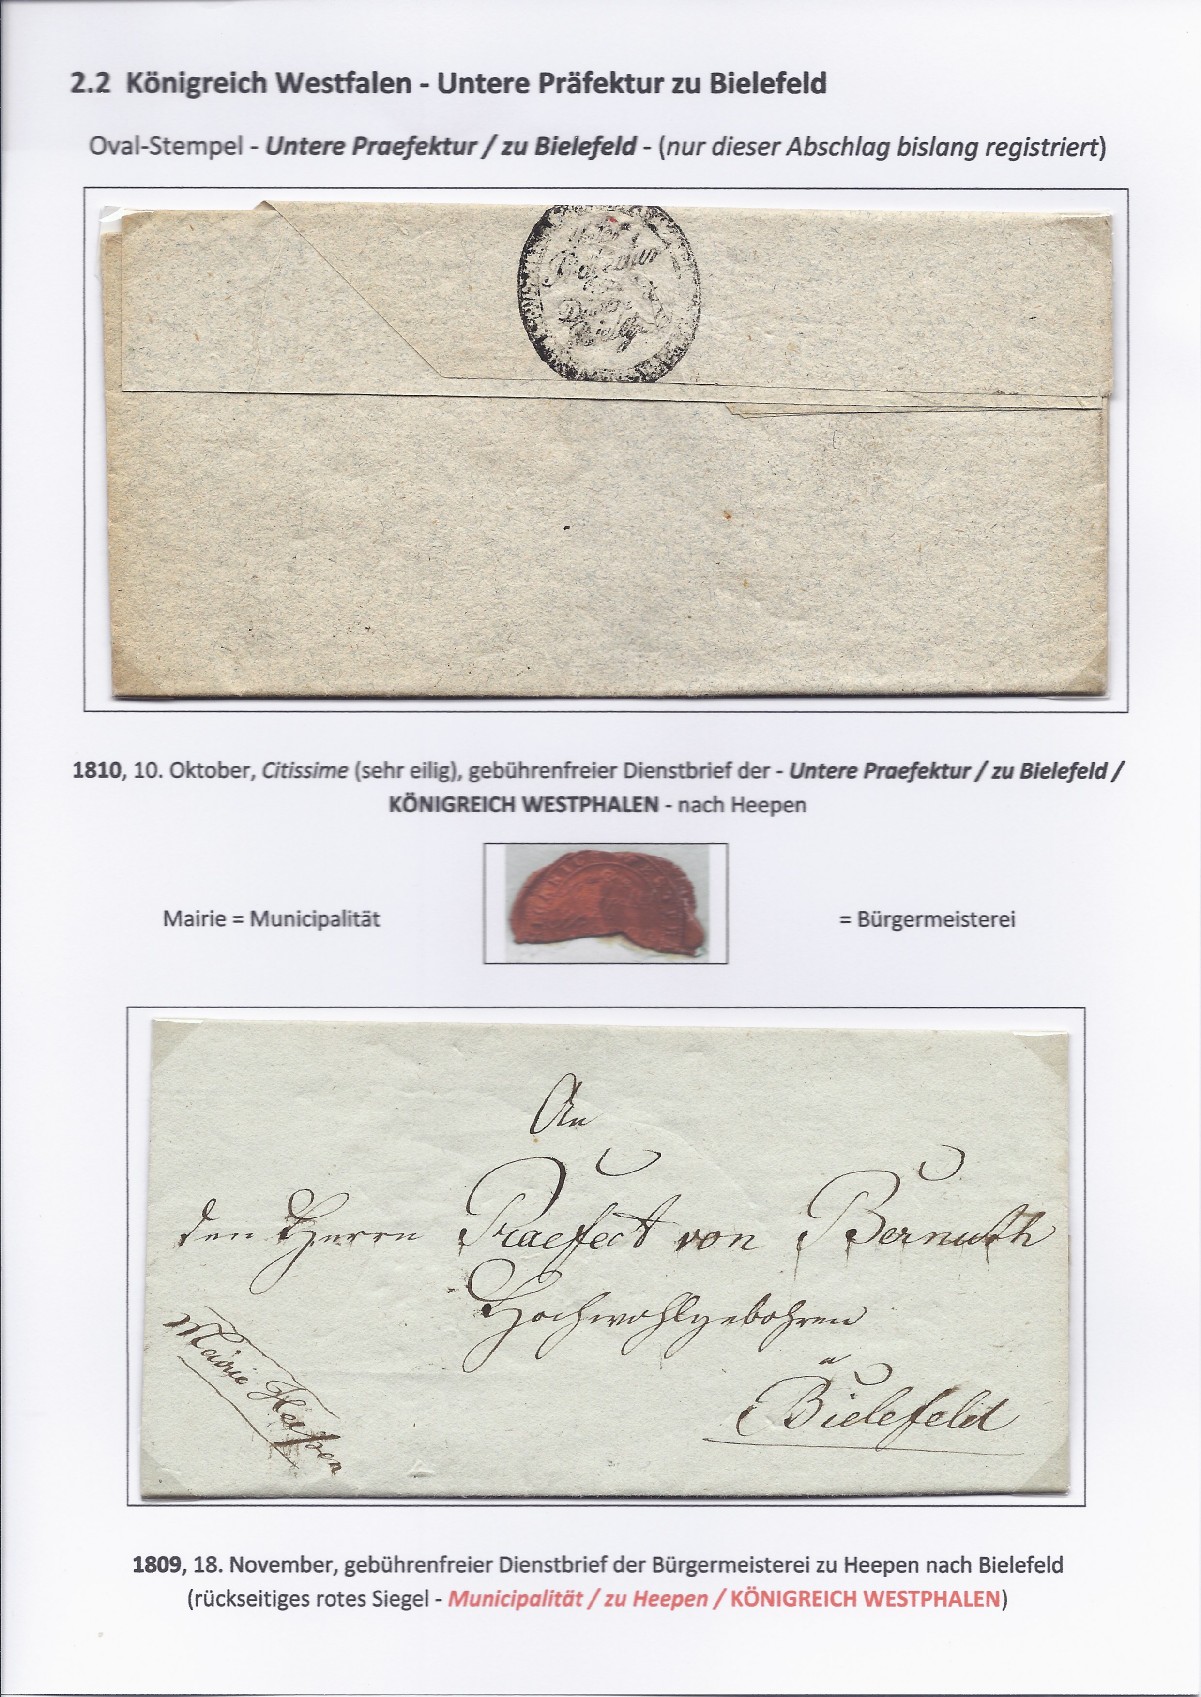 2.2 Königreich Westfalen - Untere Präfektur zu Bielefeld
Oval-Stempel - Untere Praefektur / zu Bielefeld - (nur dieser Abschlag bislang registriert)
1810, 10. Oktober, Citissime (sehr eilig), gebührenfreier Dienstbrief der - Untere Praefektur / zu Bielefeld /
KÖNIGREICH WESTPHALEN - nach Heepen
Mairie = Municipalität
= Bürgermeisterei
An
den Herrn Praefect von Bernuth
Hochwohlgebohren
Bielefeld
Mairie Heepen
1809, 18. November, gebührenfreier Dienstbrief der Bürgermeisterei zu Heepen nach Bielefeld
(rückseitiges rotes Siegel - Municipalität / zu Heepen / KÖNIGREICH WESTPHALEN)